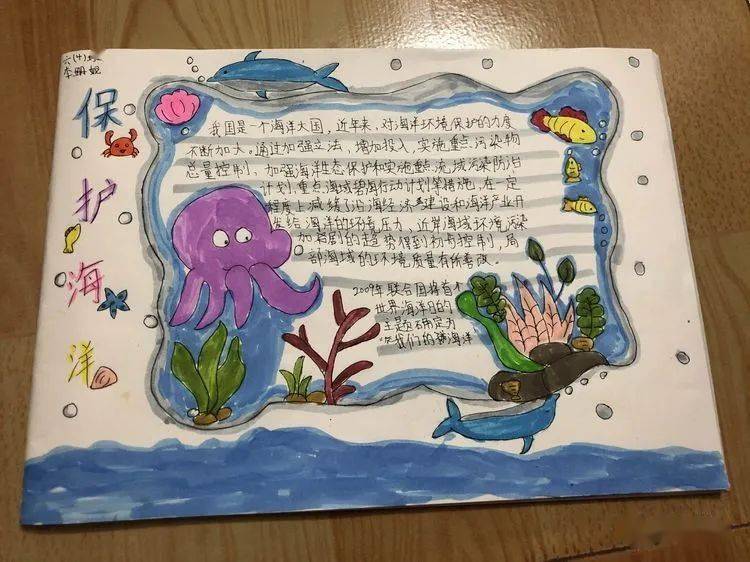 六(十)班
李珊妮
保护海洋
我国是一个海洋大国，近年来，对海洋环境保护的力度
不断加大。通过加强立法，增加投入，实施重点污染物
总量控制，加强海洋生态保护和实施重点流域污染防治
计划，重点海域碧海行动计划等措施，在一定
程度上减缓了沿海经济建设和海洋产业开
发给海洋的环境压力，近岸海域环境污染
加剧的趋势得到初步控制，局
部海域的环境质量有所善改。
2009年联合国将首个
世界海洋日的
主题确定为
"我们的海洋